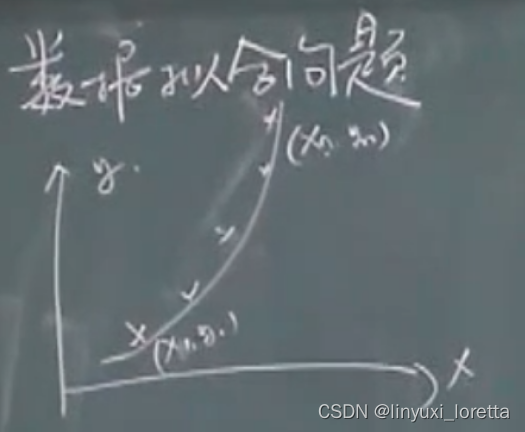 数据拟合问题
(xn, yn)
y
(x1, y1)
x
CSDN @linyuxi_loretta